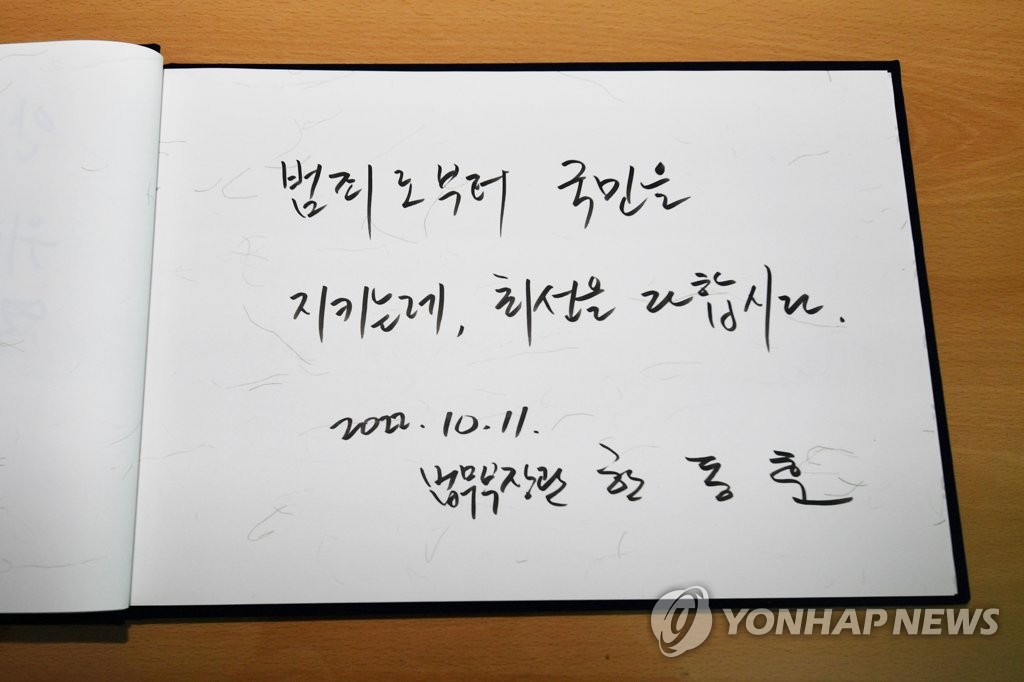 범죄로부터 국민을
지키는데, 최선을 다합시다.
2022. 10. 11.
법무부장관 한 동 훈
YONHAP NEWS